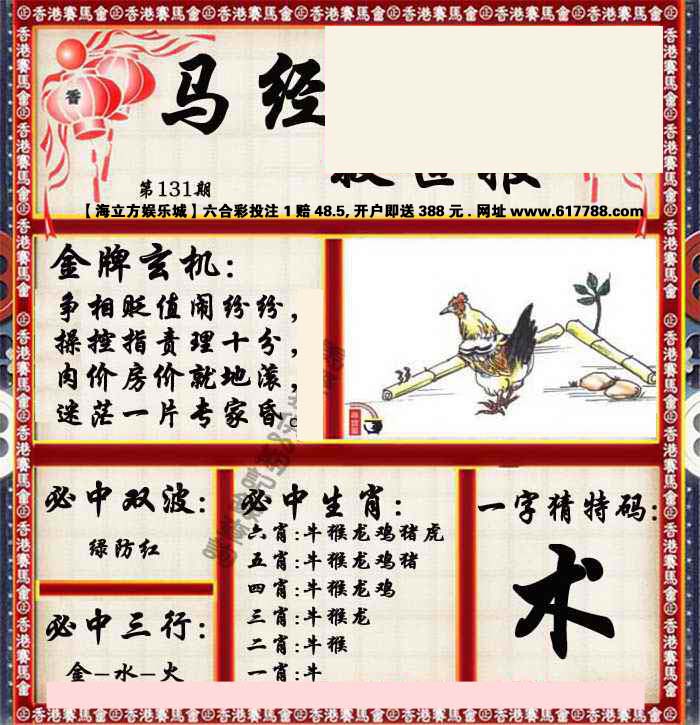 香港賽馬會
香
马经
第131期
【海立方娱乐城】六合彩投注1赔48.5,开户即送388元.网址www.617788.com
金牌玄机:
争相贬值闹纷纷,
操控指责理十分,
肉价房价就地滚,
迷茫一片专家昏。
必中双波:
绿防红
必中三行:
金-水-火
必中生肖:
六肖:牛猴龙鸡猪虎
五肖:牛猴龙鸡猪
四肖:牛猴龙鸡
三肖:牛猴龙
二肖:牛猴
一肖:牛
一字猜特码:
术